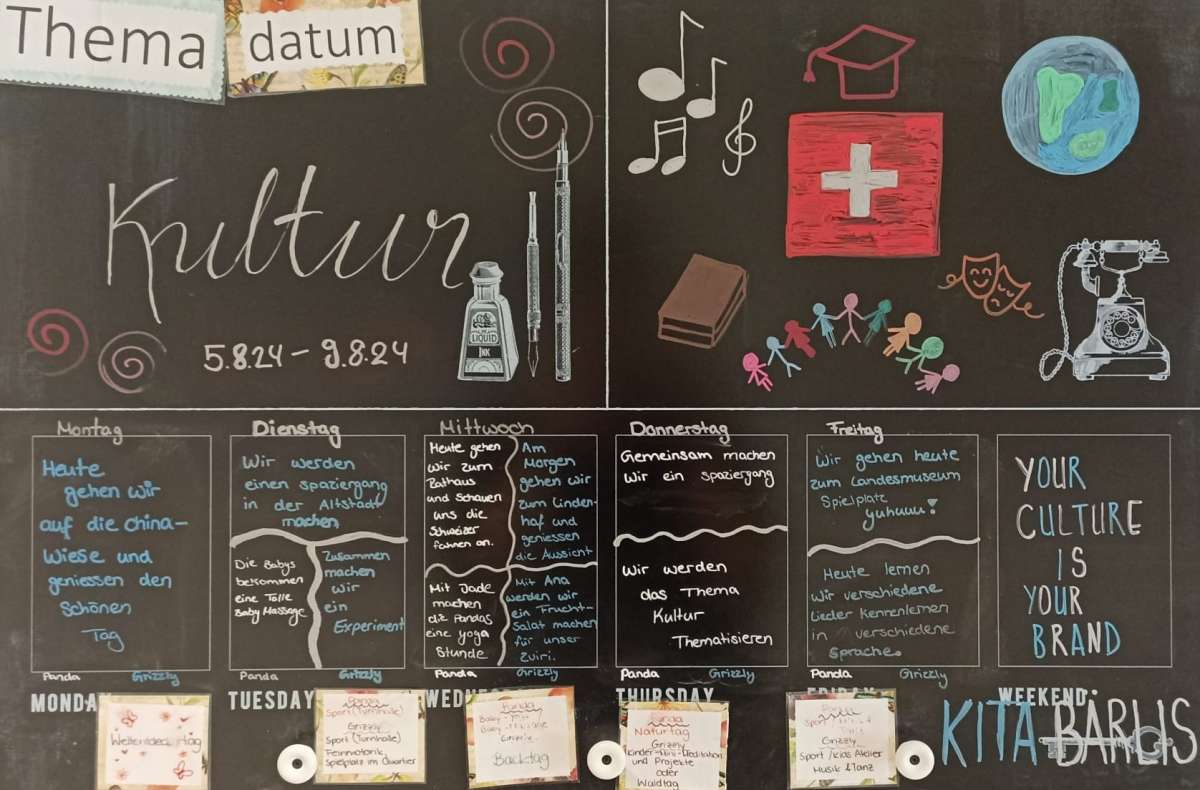 Thema
datum
Kultur
5.8.24 – 9.8.24
LIQUID
INK
Montag
Heute
gehen wir
auf die China-
Wiese und
geniessen den
Schönen
Tag
Panda
Grizzly
MONDAY
Dienstag
Wir werden
einen spaziergang
in der Altstadt
machen
Die Babys
bekommen
eine Tolle
Baby Massage
Zusammen
machen
wir
ein
Experiment
Panda
Grizzly
TUESDAY
Mittwoch
Heute gehen
wir zum
Rathaus
und Schauen
uns die
Schweizer
fahnen an.
Am
Morgen
gehen wir
zum Linden-
hof und
geniessen
die Aussicht
Mit Jade
machen
die Pandas
eine yoga
Stunde
Mit Ana
werden wir
ein Frucht-
Salat machen
für unser
Zviri.
Panda
Grizzly
Donnerstag
Gemeinsam machen
Wir ein spaziergang
Wir werden
das Thema
Kultur
Thematisieren
Panda
Grizzly
THURSDAY
Freitag
Wir gehen heute
zum Landesmuseum
Spielplatz
yuhuuu!
Heute lernen
Wir verschiedene
Lieder Kennenlernen
in verschiedene
Sprache.
Panda
Grizzly
YOUR
CULTURE
IS
YOUR
BRAND
WEEKEND
KITA BÄRLIS
Weltentdeckertag
Sport (Turnhalle)
Grizzly
Sport (Turnhalle)
Feinmotorik,
Spielplatz im Quartier
Panda
Baby - Yoga
Baby - Massage
Grizzly
Backtag
Panda
Naturtag
Grizzly
Kinder-Mini-Meditation
und Projekte
oder
Waldtag
Grizzly
Sport / Kids Atelier
Musik & Tanz